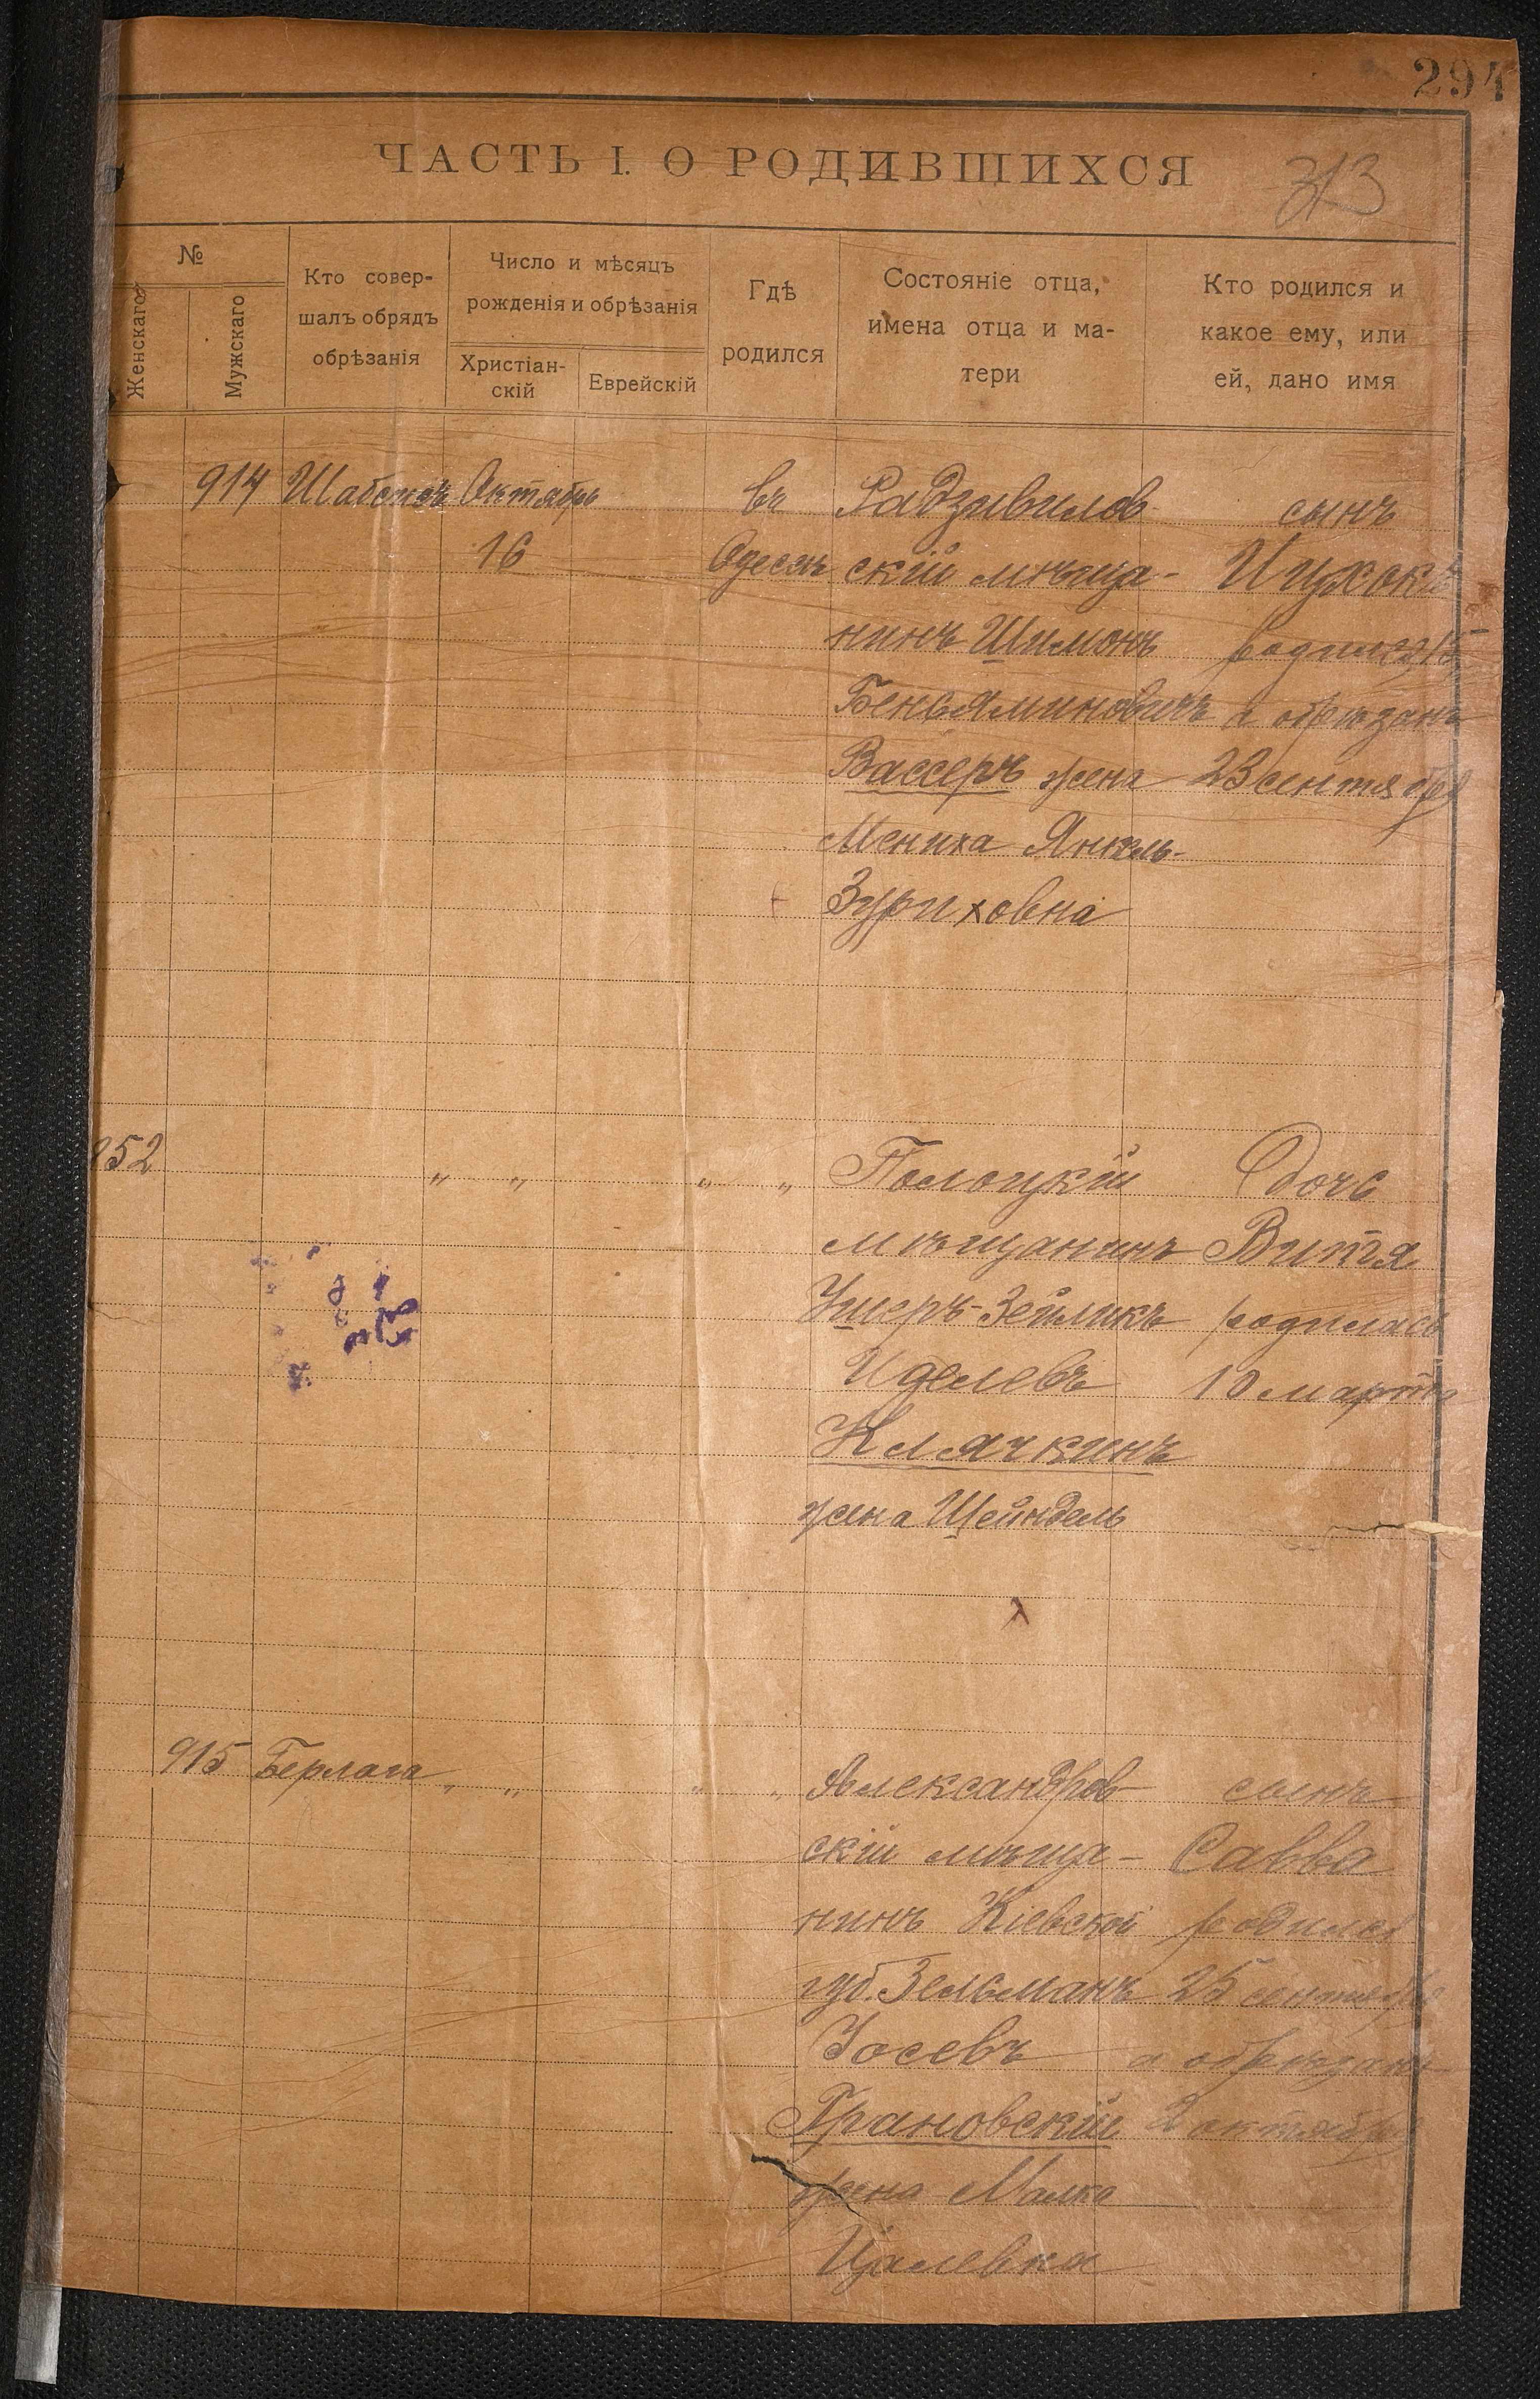 294
ЧАСТЬ I. О РОДИВШИХСЯ
313
№
Женскаго
Мужскаго
Кто совер-
шалъ обрядъ
обрѣзанія
Число и мѣсяцъ
рожденія и обрѣзанія
Христіан-
скій
Еврейскій
Гдѣ
родился
Состояніе отца,
имена отца и ма-
тери
Кто родился и
какое ему, или
ей, дано имя
914
Октябрь
16
въ
Одессѣ
Радзивилов-
скій мѣща-
нинъ Шимонъ
Беньяминовичъ
Вассеръ жена
Мениха Янкель-
Зуриховна
сынъ
Ицхокъ
родился 15
а обрѣзанъ
23 сентября
852
" " " "
Полоцкій
мѣщанинъ
Ушеръ-Зейликъ
Иделевъ
Клячкинъ
жена Шейндель
Дочь
Витя
родилась
10 марта
915
Берлага
" " " "
Александров-
скій мѣща-
нинъ Кіевской
губ. Зельманъ
Іосевъ
Грановскій
жена Малка
Цалевна
сынъ
Савва
родился
25 сентября
а обрѣзанъ
2 октября